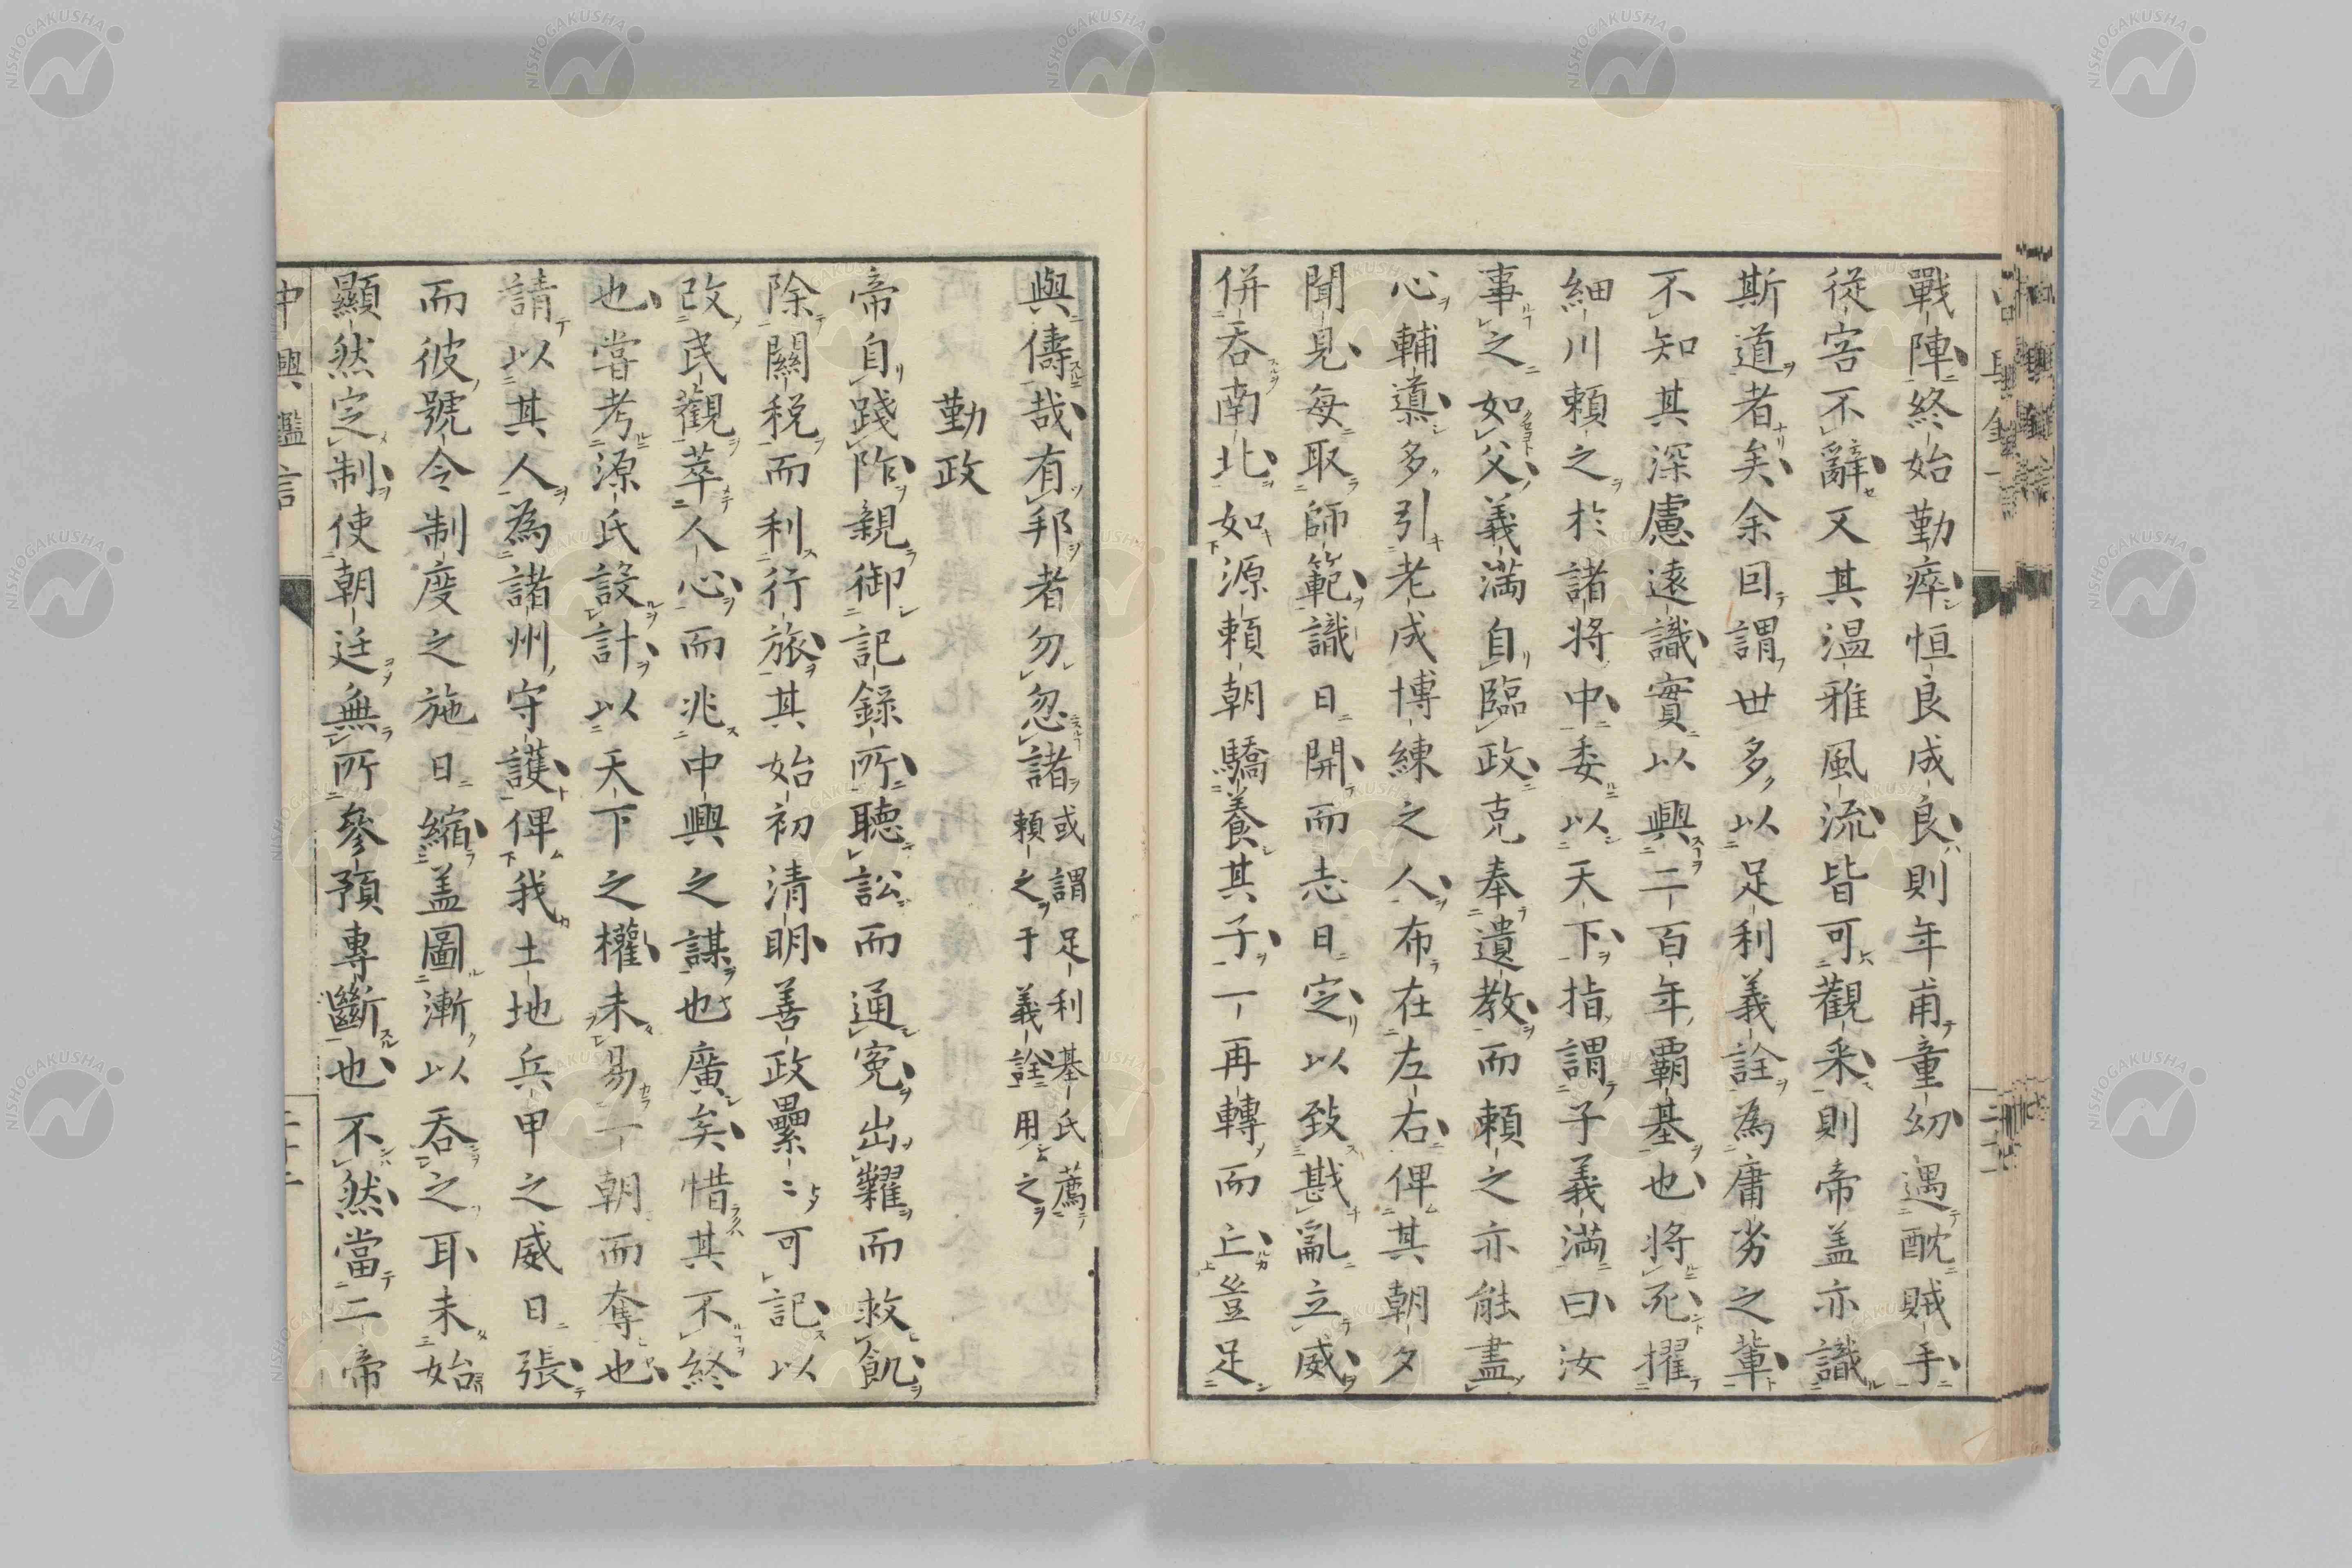 戰陣終始勤瘁恒良成良則年甫童幼遇酖賊手
從容不辭又其温雅風流皆可觀采則帝盖亦識
斯道者矣余回謂世多以足利義詮為庸劣之輩
不知其深慮遠識實以興二百年覇基也將死擢
細川頼之於諸將中委以天下指謂子義満曰汝
事之如父義満自臨政克奉遺教而頼之亦能盡
心輔導多引老成博練之人布在左右俾其朝夕
聞見每取師範識日開而志日定以致戡亂立威
併吞南北如源頼朝驕養其子一再轉而亡豈足
與儔哉有邦者勿忽諸或謂足利基氏薦頼之于義詮用之
勤政
帝自踐阼親御記録所聽訟而通寃出糶而救飢
除關税而利行旅其始初清明善政纍〻可記以
改民觀萃人心而兆中興之謀也廣矣惜其不終
也嘗考源氏設計以天下之權未易一朝而奪也
請以其人為諸州守護俾我土地兵甲之威日張
而彼號令制度之施日縮盖圖漸以吞之耳未始
顯然定制使朝廷無所參預專斷也不然當二帝
中興鑑言
二十二
NISHOGAKUSHA